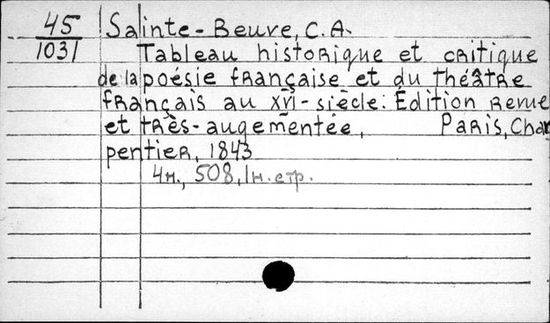 45 Sainte-Beuve, C.A.
1031 Tableau historique et critique
de la poésie française et du théâtre
français au XVI-siècle. Édition revue
et très-augementée, Paris, Char
pentier, 1843
4н., 508, 1н. стр.